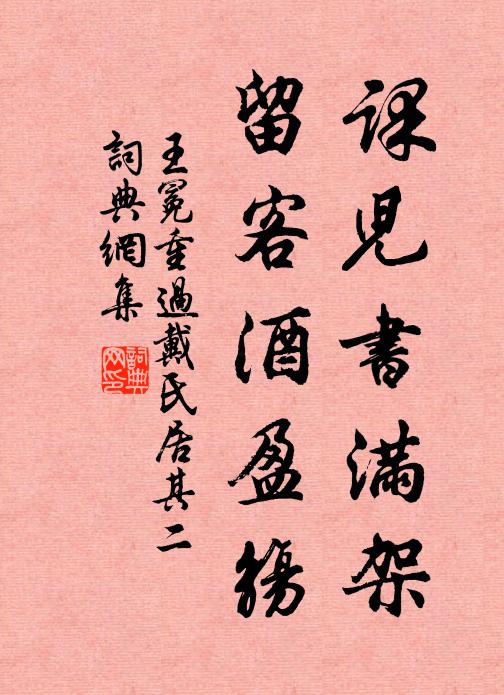 課児書満架
留客酒盈觴
王冕重過戴氏居其二
詞典網集
詞典
网印